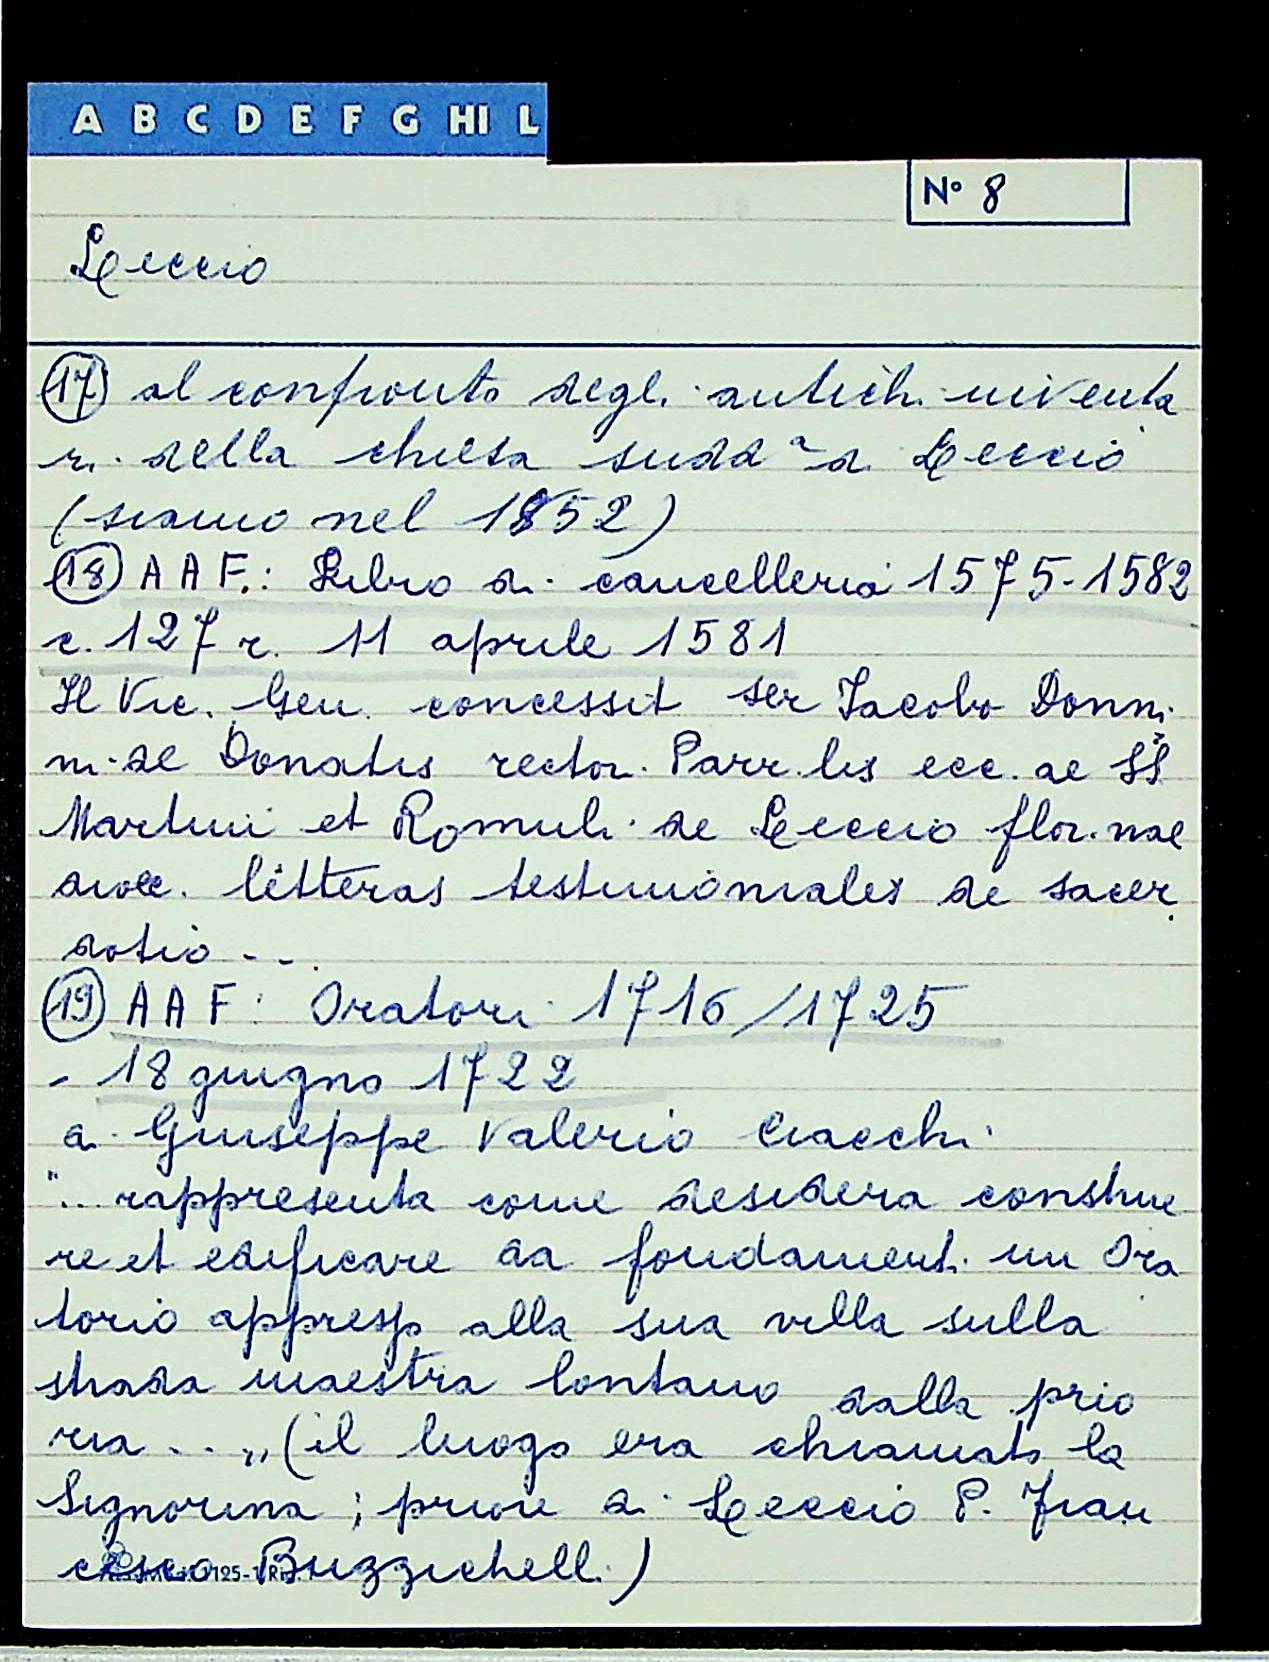 A B C D E F G HI L
N° 8
Leccio
17 al confronto degli antichi inventa
ri della chiesa sudd.a di Leccio
(siamo nel 1852)
18 A A F.: Libro di cancelleria 1575-1582
c. 127 r. 11 aprile 1581
Il Vic. Gen. concessit ser Jacobo Donni
ni de Donatis rectori Parr.lis ecc.ae SS
Martini et Romuli de Leccio flor.nae
dioec. litteras testimoniales de sacer
dotio ...
19 A A F: Oratori 1716/1725
- 18 giugno 1722
a. Giuseppe Valerio Ciacchi
"... rappresenta come desidera construe
re et edificare da fondamenti un Ora
torio appresso alla sua villa sulla
strada maestra lontano dalla prio
ria ..." (il luogo era chiamato la
Signorina; priore di Leccio P. Fran
cesco Buzzichelli)